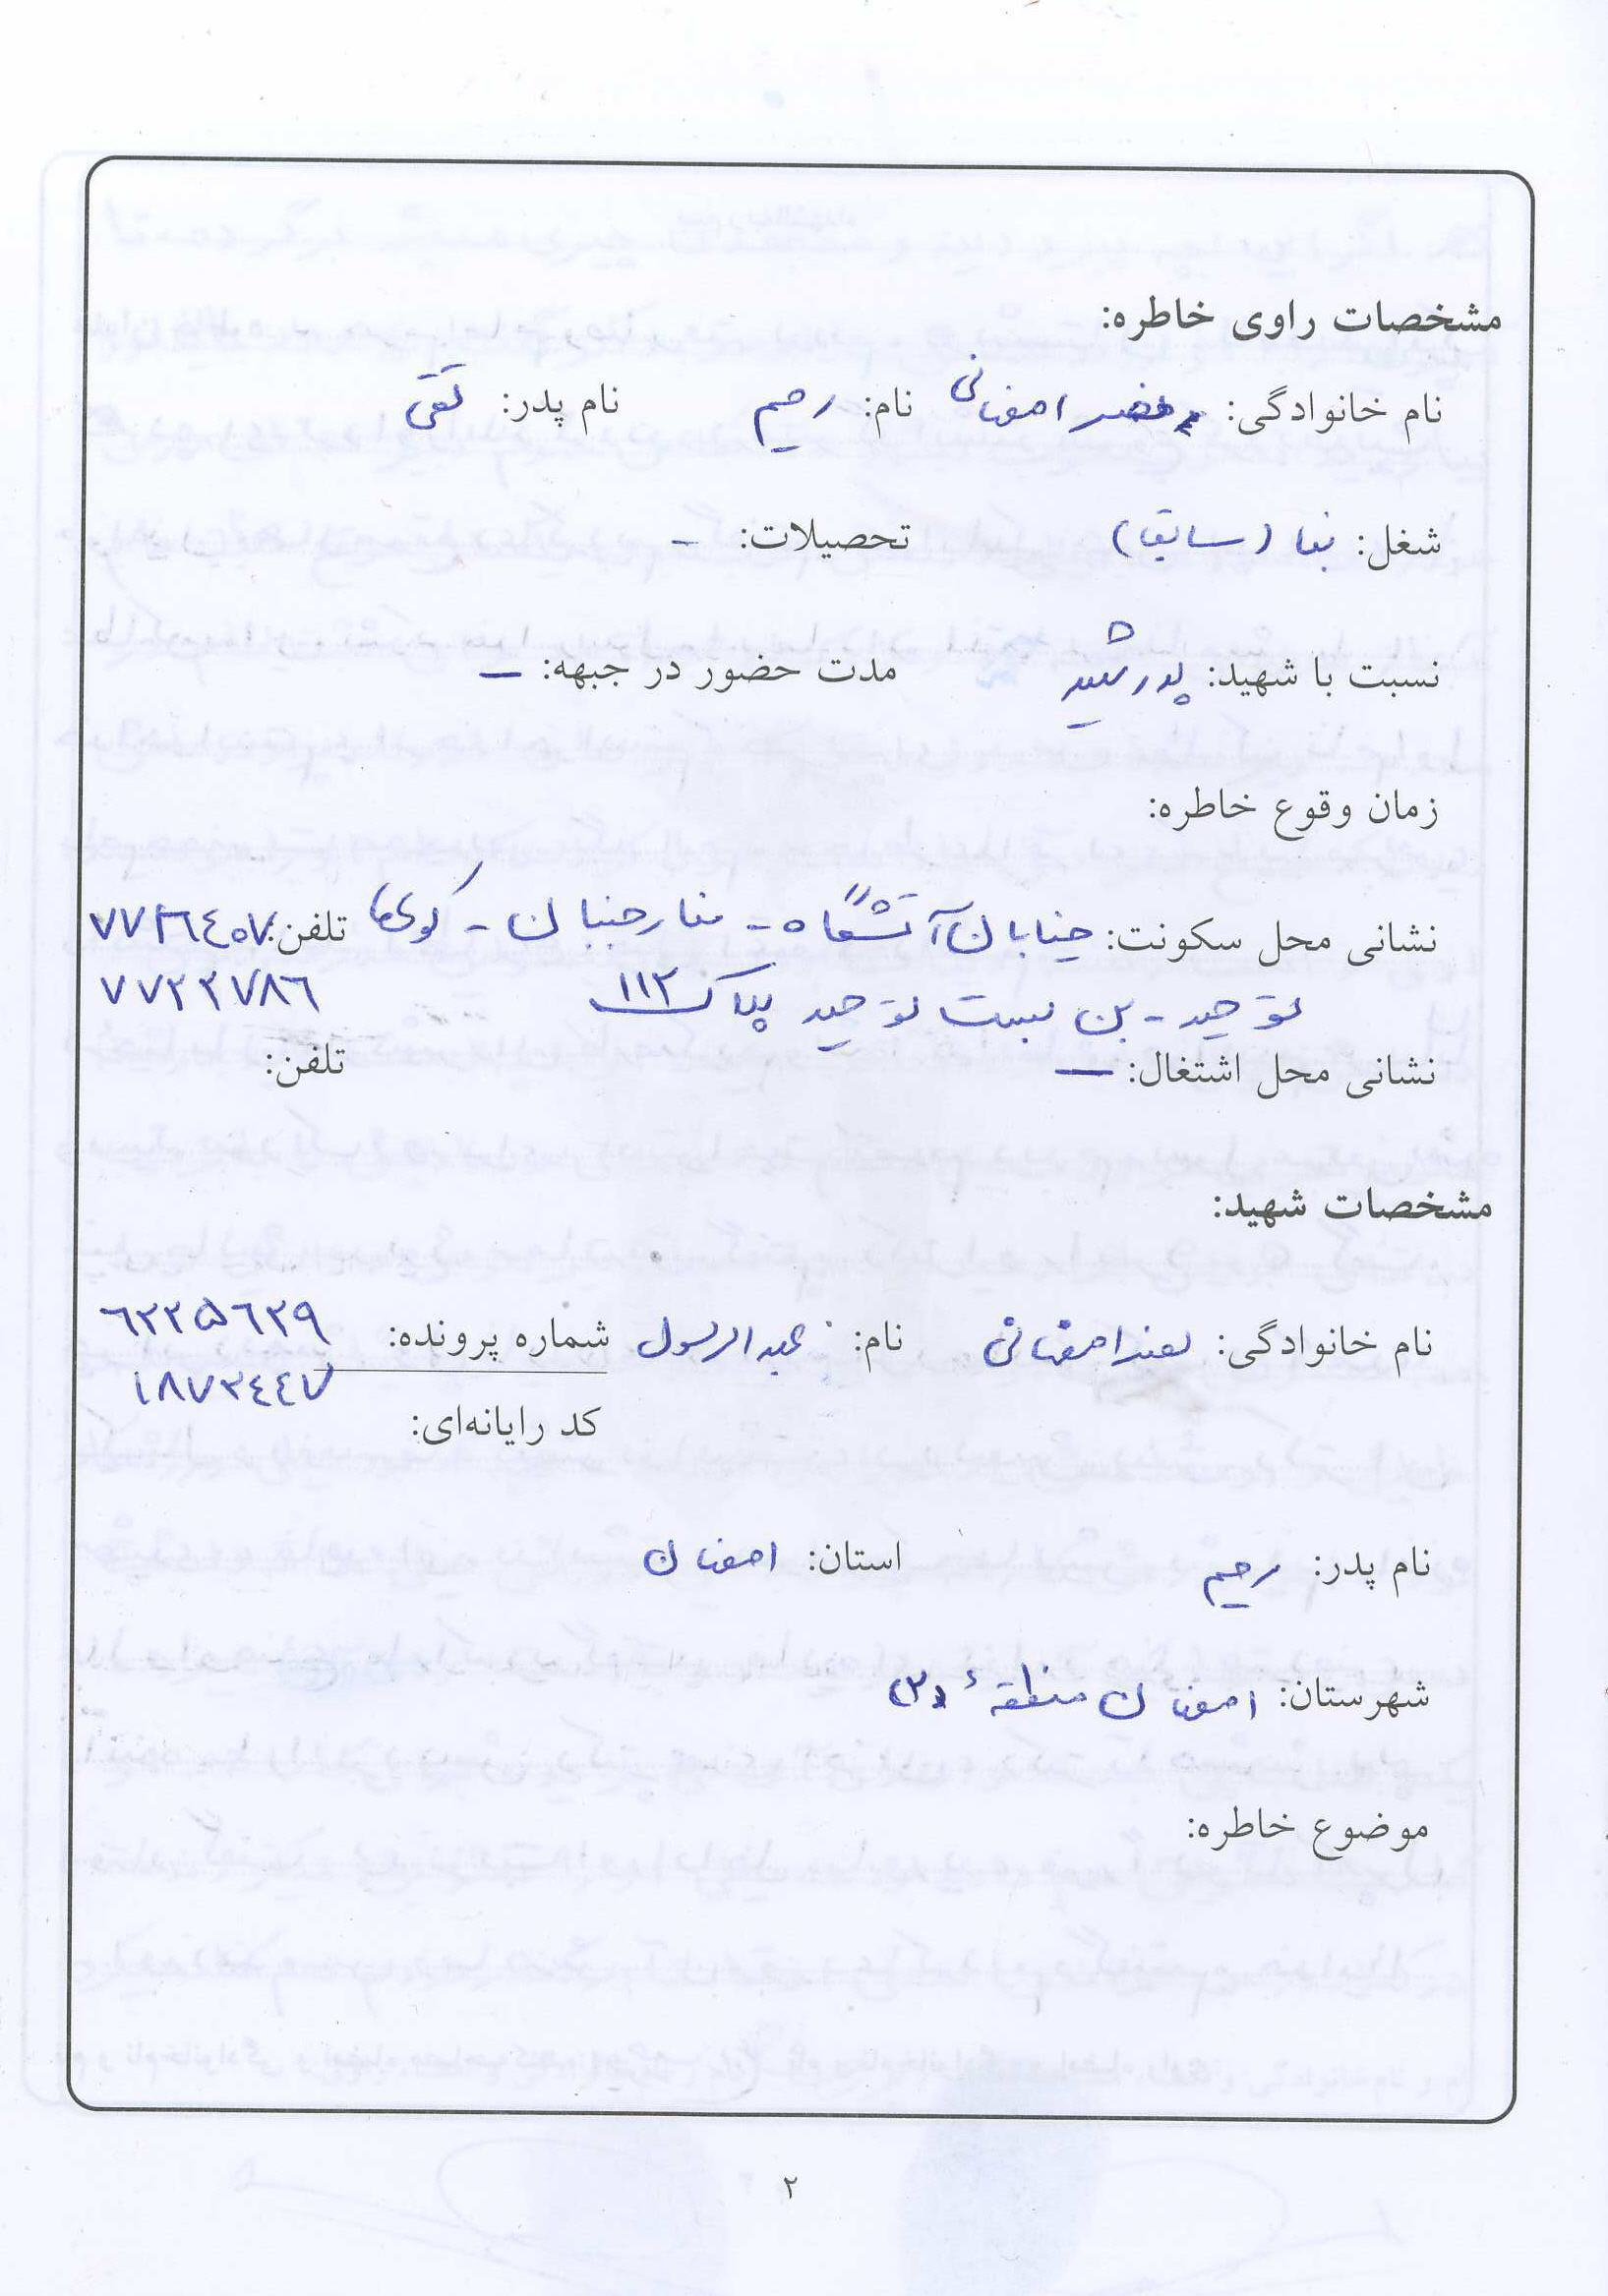 مشخصات راوی خاطره:
نام خانوادگی: اصفهانی نام: رحیم نام پدر: تقی
شغل: بنا (سابق) تحصیلات: -
نسبت با شهید: پدر شهید مدت حضور در جبهه: –
زمان وقوع خاطره:
نشانی محل سکونت: خیابان آتشگاه - منارجنبان - کوی تلفن: ۷۷۳۶۴۰۷
توحید - بن بست توحید پلاک ۱۱۳ ۷۷۲۲۷۸۶
نشانی محل اشتغال: — تلفن:
مشخصات شهید:
نام خانوادگی: اصفهانی نام: عبدالرسول شماره پرونده: ۶۲۲۵۶۲۹
کد رایانه‌ای: ۱۸۷۳۴۴۷
نام پدر: رحیم استان: اصفهان
شهرستان: اصفهان منطقهٔ (۳)
موضوع خاطره:
۲